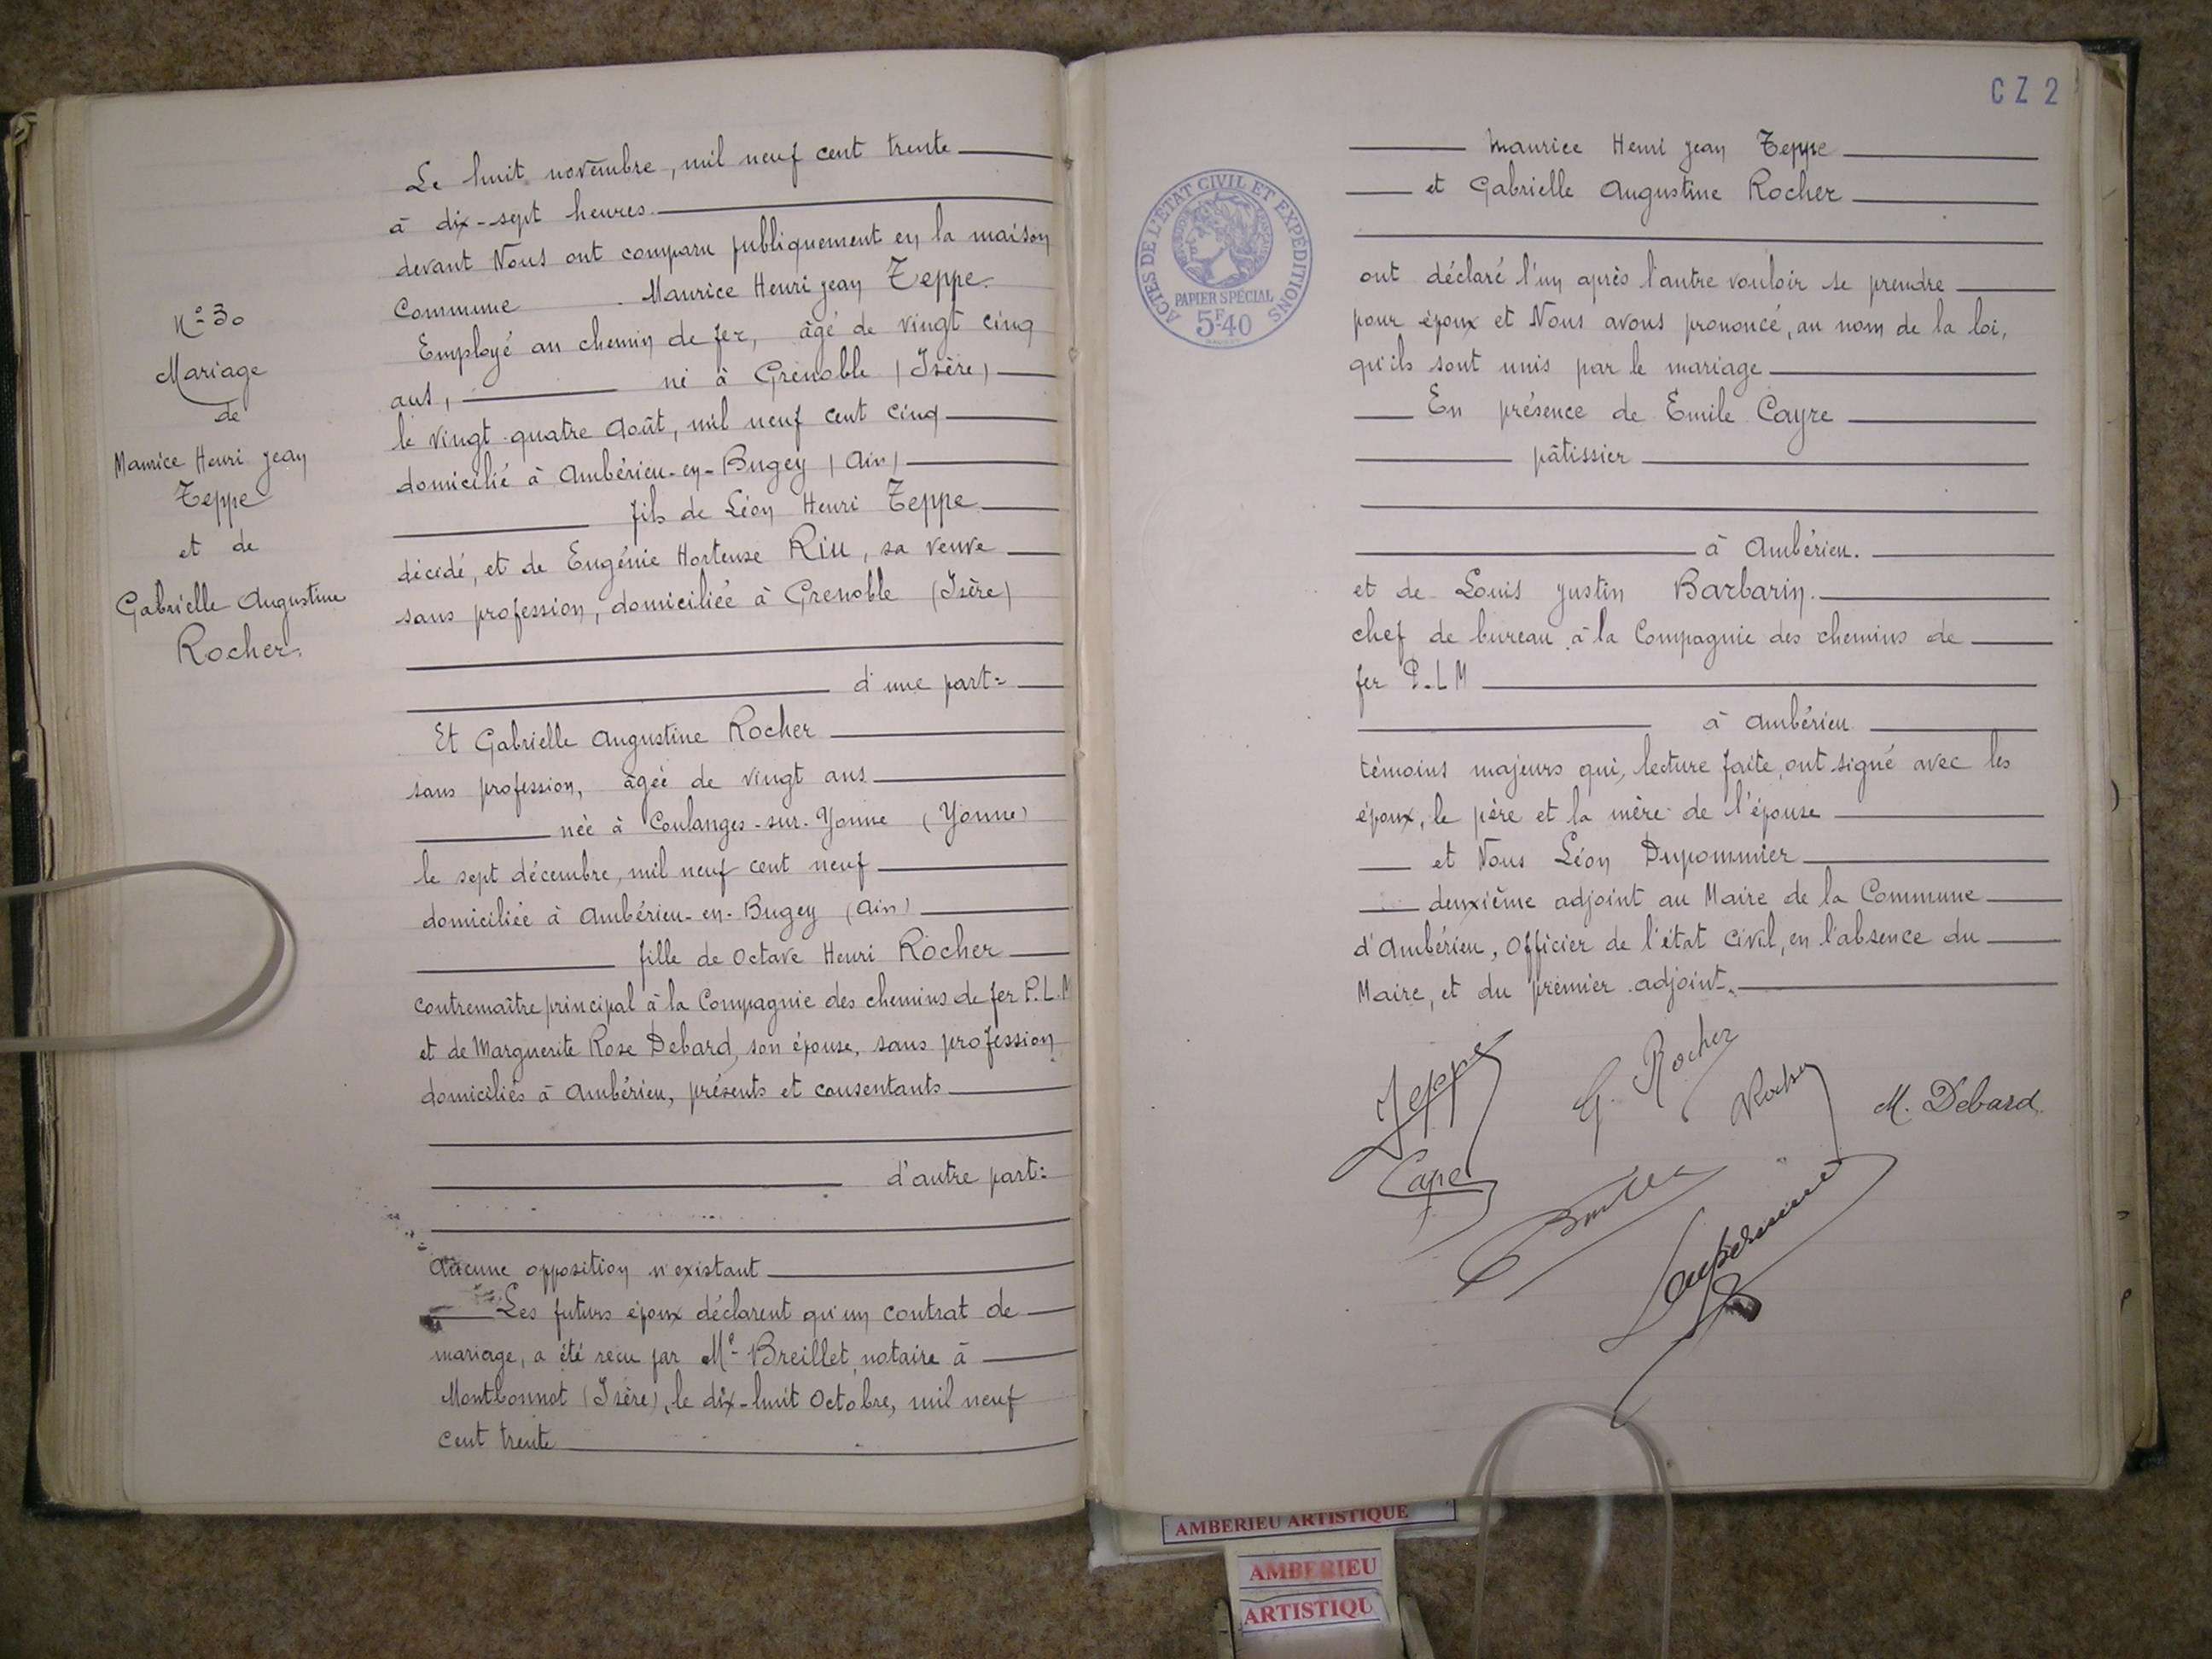 N° 30
Mariage
de
Maurice Henri Jean
Teppe
et de
Gabrielle Augustine
Rocher.
Le huit novembre, mil neuf cent trente
à dix-sept heures.
devant Nous ont comparu publiquement en la maison
Commune Maurice Henri Jean Teppe.
Employé au chemin de fer, âgé de vingt cinq
ans, né à Grenoble (Isère)
le vingt-quatre Août, mil neuf cent cinq
domicilié à Ambérieu-en-Bugey (Ain)
fils de Léon Henri Teppe
décédé, et de Eugénie Hortense Riu, sa veuve
sans profession, domiciliée à Grenoble (Isère)
d'une part=
Et Gabrielle Augustine Rocher
sans profession, âgée de vingt ans
née à Coulanges-sur-Yonne (Yonne)
le sept décembre, mil neuf cent neuf
domiciliée à Ambérieu-en-Bugey (Ain)
fille de Octave Henri Rocher
contremaître principal à la Compagnie des chemins de fer P.L.M
et de Marguerite Rose Debard, son épouse, sans profession
domiciliés à Ambérieu, présents et consentants
d'autre part=
Aucune opposition n'existant
Les futurs époux déclarent qu'un contrat de
mariage, a été reçu par Me Breillet, notaire à
Montbonnot (Isère), le dix-huit Octobre, mil neuf
cent trente
CZ2
ACTES DE L'ÉTAT CIVIL ET EXPÉDITIONS
PAPIER SPÉCIAL
5F40
Maurice Henri Jean Teppe
et Gabrielle Augustine Rocher
ont déclaré l'un après l'autre vouloir se prendre
pour époux et Nous avons prononcé, au nom de la loi,
qu'ils sont unis par le mariage
En présence de Emile Cayre
pâtissier
à Ambérieu.
et de Louis Justin Barbarin.
chef de bureau à la Compagnie des chemins de
fer P.L M
à Ambérieu
témoins majeurs qui, lecture faite, ont signé avec les
époux, le père et la mère de l'épouse
et Nous Léon Dupommier
deuxième adjoint au Maire de la Commune
d'Ambérieu, Officier de l'état civil, en l'absence du
Maire, et du premier adjoint.
Teppe
G. Rocher
Rocher
M. Debard
AMBERIEU ARTISTIQUE
AMBERIEU
ARTISTIQU